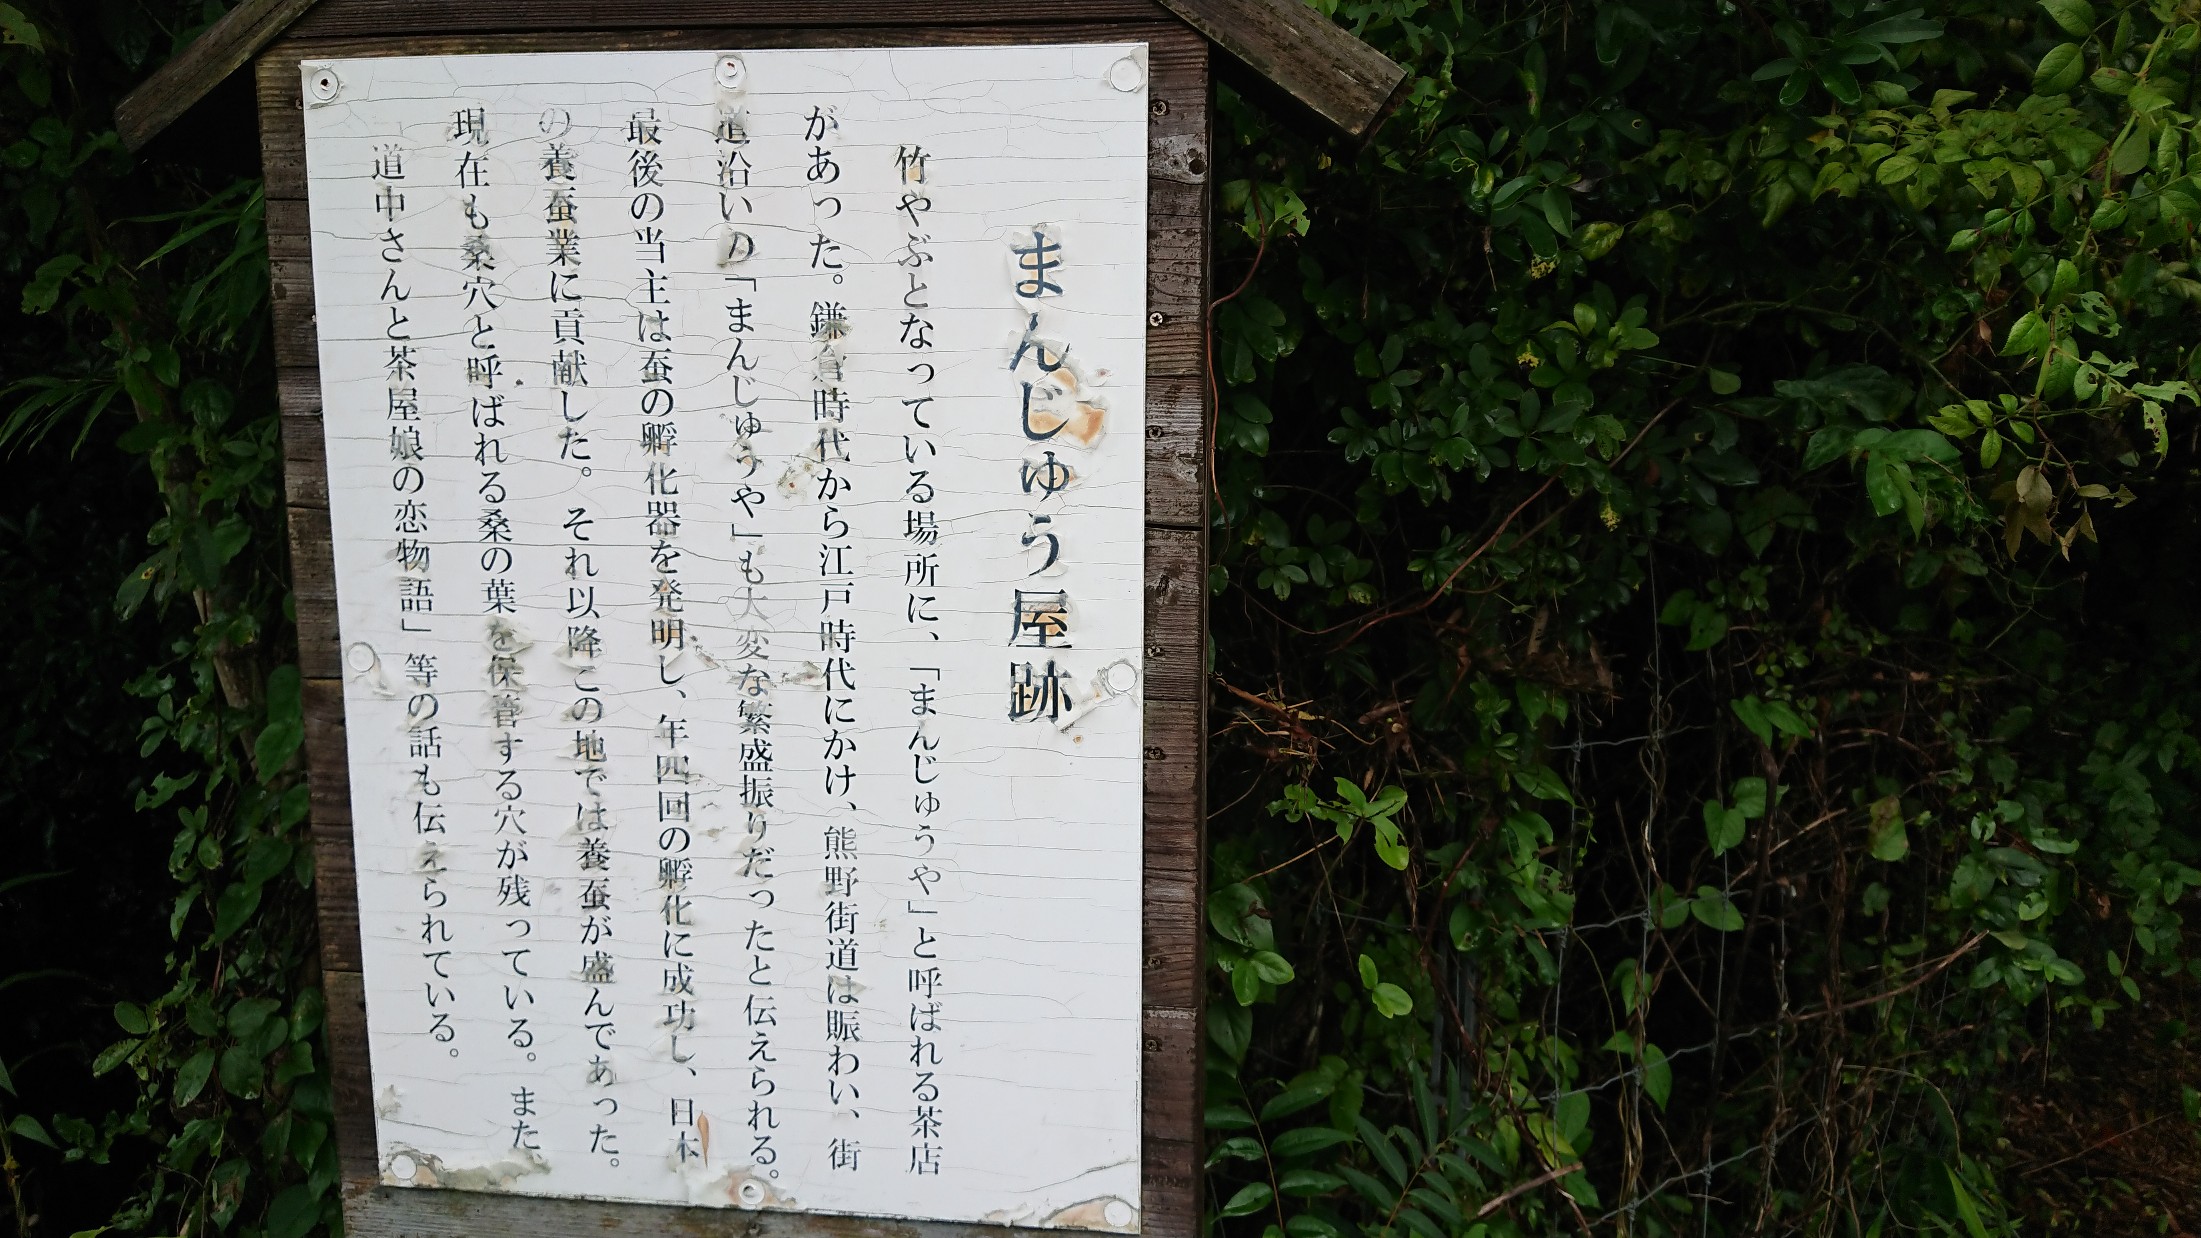 まんじゅう屋跡
竹やぶとなっている場所に、「まんじゅうや」と呼ばれる茶店
があった。鎌倉時代から江戸時代にかけ、熊野街道は賑わい、街
道沿いの「まんじゅうや」も大変な繁盛振りだったと伝えられる。
最後の当主は蚕の孵化器を発明し、年四回の孵化に成功し、日本
の養蚕業に貢献した。それ以降この地では養蚕が盛んであった。
現在も桑穴と呼ばれる桑の葉を保蓄する穴が残っている。また、
道中さんと茶屋娘の恋物語」等の話も伝えられている。